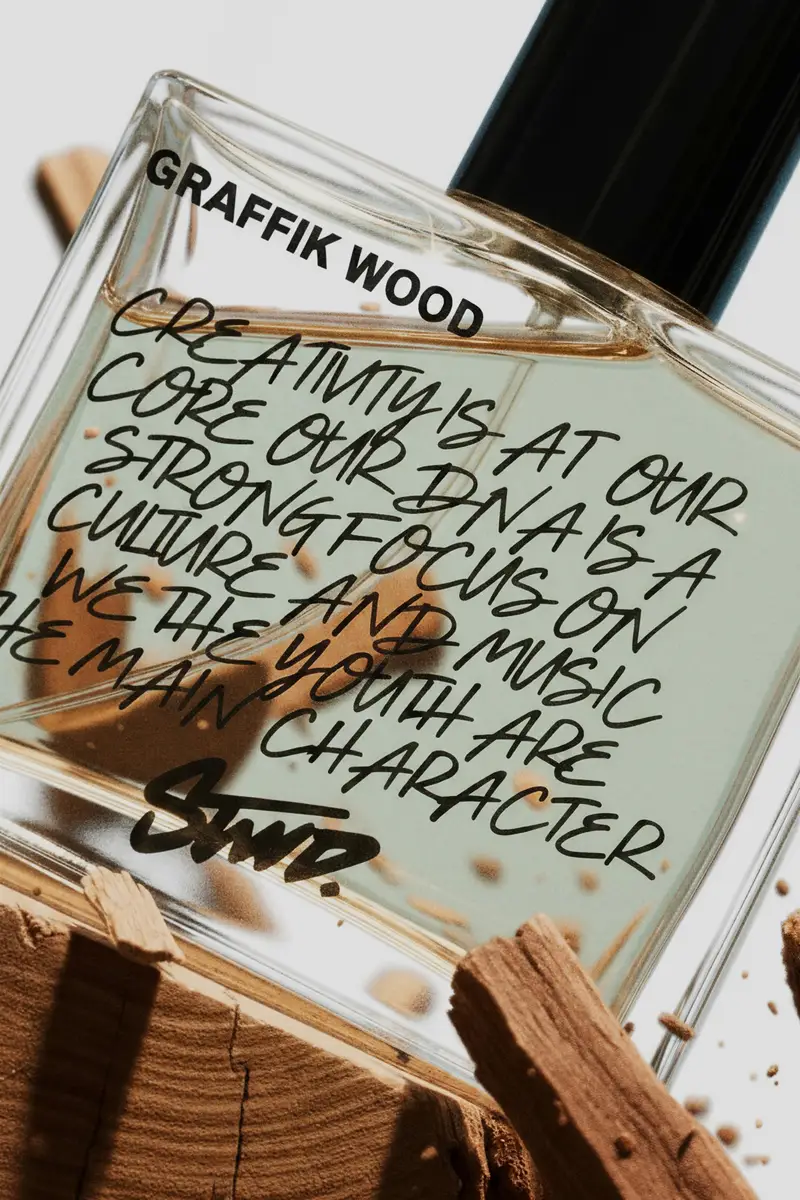 GRAFFIK WOOD
CREATIVITY IS AT OUR
CORE OUR DNA IS A
STRONG FOCUS ON
CULTURE AND MUSIC
WE THE YOUTH ARE
THE MAIN CHARACTER
STWD.